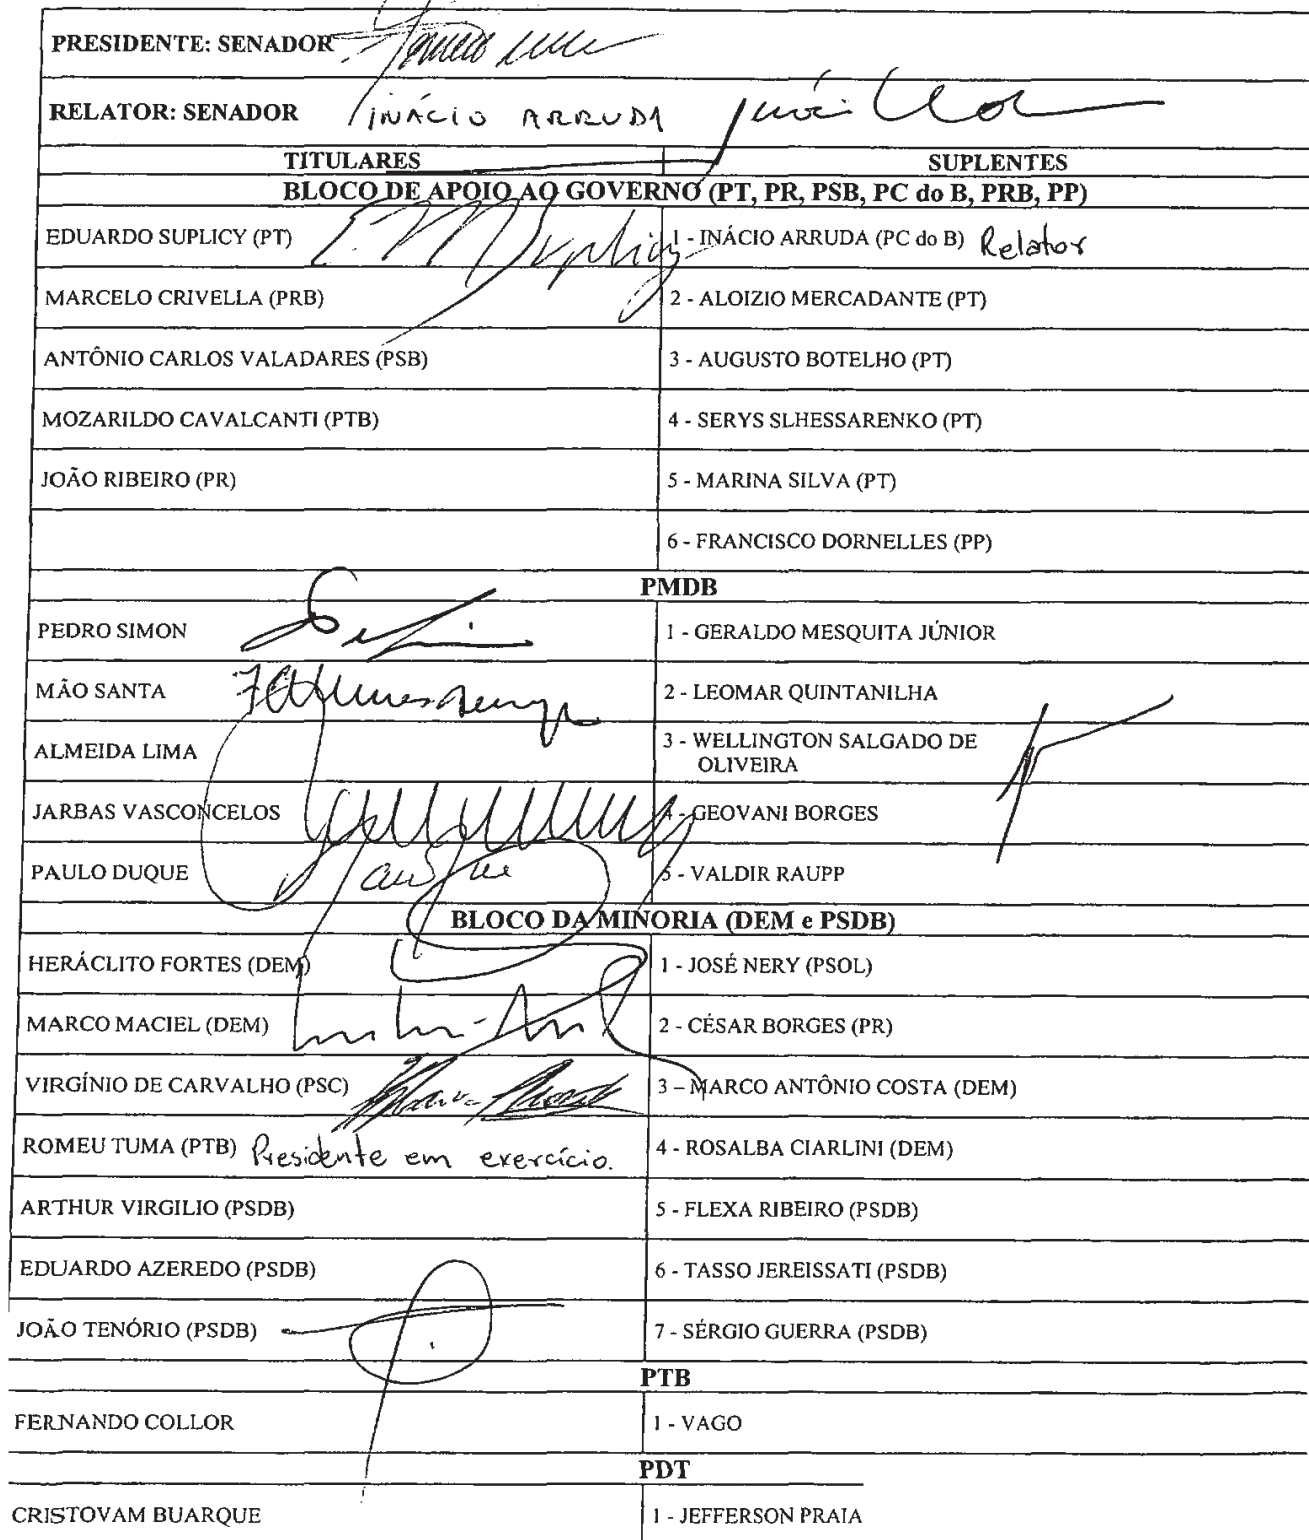 PRESIDENTE: SENADOR
RELATOR: SENADOR INÁCIO ARRUDA
TITULARES SUPLENTES
BLOCO DE APOIO AO GOVERNO (PT, PR, PSB, PC do B, PRB, PP)
EDUARDO SUPLICY (PT) 1 - INÁCIO ARRUDA (PC do B) Relator
MARCELO CRIVELLA (PRB) 2 - ALOIZIO MERCADANTE (PT)
ANTÔNIO CARLOS VALADARES (PSB) 3 - AUGUSTO BOTELHO (PT)
MOZARILDO CAVALCANTI (PTB) 4 - SERYS SLHESSARENKO (PT)
JOÃO RIBEIRO (PR) 5 - MARINA SILVA (PT)
6 - FRANCISCO DORNELLES (PP)
PMDB
PEDRO SIMON 1 - GERALDO MESQUITA JÚNIOR
MÃO SANTA 2 - LEOMAR QUINTANILHA
ALMEIDA LIMA 3 - WELLINGTON SALGADO DE
OLIVEIRA
JARBAS VASCONCELOS 4 - GEOVANI BORGES
PAULO DUQUE 5 - VALDIR RAUPP
BLOCO DA MINORIA (DEM e PSDB)
HERÁCLITO FORTES (DEM) 1 - JOSÉ NERY (PSOL)
MARCO MACIEL (DEM) 2 - CÉSAR BORGES (PR)
VIRGÍNIO DE CARVALHO (PSC) 3 – MARCO ANTÔNIO COSTA (DEM)
ROMEU TUMA (PTB) Presidente em exercício. 4 - ROSALBA CIARLINI (DEM)
ARTHUR VIRGILIO (PSDB) 5 - FLEXA RIBEIRO (PSDB)
EDUARDO AZEREDO (PSDB) 6 - TASSO JEREISSATI (PSDB)
JOÃO TENÓRIO (PSDB) 7 - SÉRGIO GUERRA (PSDB)
PTB
FERNANDO COLLOR 1 - VAGO
PDT
CRISTOVAM BUARQUE 1 - JEFFERSON PRAIA